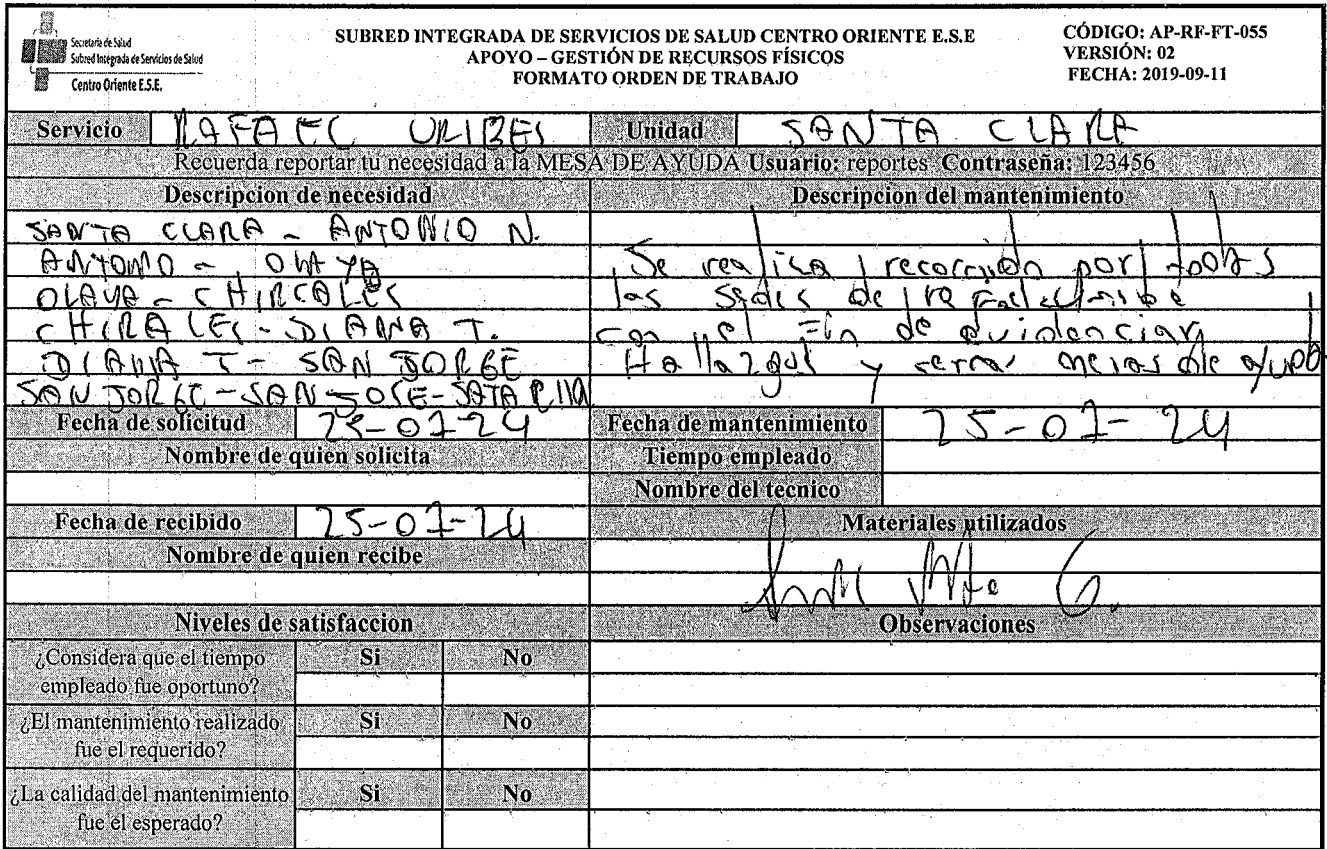 Secretaría de Salud
Subred Integrada de Servicios de Salud
Centro Oriente E.S.E.
SUBRED INTEGRADA DE SERVICIOS DE SALUD CENTRO ORIENTE E.S.E
APOYO – GESTIÓN DE RECURSOS FÍSICOS
FORMATO ORDEN DE TRABAJO
CÓDIGO: AP-RF-FT-055
VERSIÓN: 02
FECHA: 2019-09-11
Servicio RAFAEL URIBES Unidad SANTA CLARA
Recuerda reportar tu necesidad a la MESA DE AYUDA Usuario: reportes Contraseña: 123456
Descripcion de necesidad
SANTA CLARA - ANTONIO N.
ANTONIO - OLAYA
OLAYA - CHIRCALES
CHIRALES - DIANA T.
DIANA T - SAN JORGE
SAN JORGE - SAN JOSE -
Descripcion del mantenimiento
Se realiza recorrido por todas
las sedes de Rafael Uribe
con el Fin de evidenciar
Hallazgos y cerrar mesas de ayuda
Fecha de solicitud 25-01-24
Fecha de mantenimiento 25-01-24
Nombre de quien solicita
Tiempo empleado
Nombre del tecnico
Fecha de recibido 25-01-24
Materiales utilizados
Nombre de quien recibe
Niveles de satisfaccion
Observaciones
¿Considera que el tiempo
empleado fue oportuno?
Si No
¿El mantenimiento realizado
fue el requerido?
Si No
¿La calidad del mantenimiento
fue el esperado?
Si No